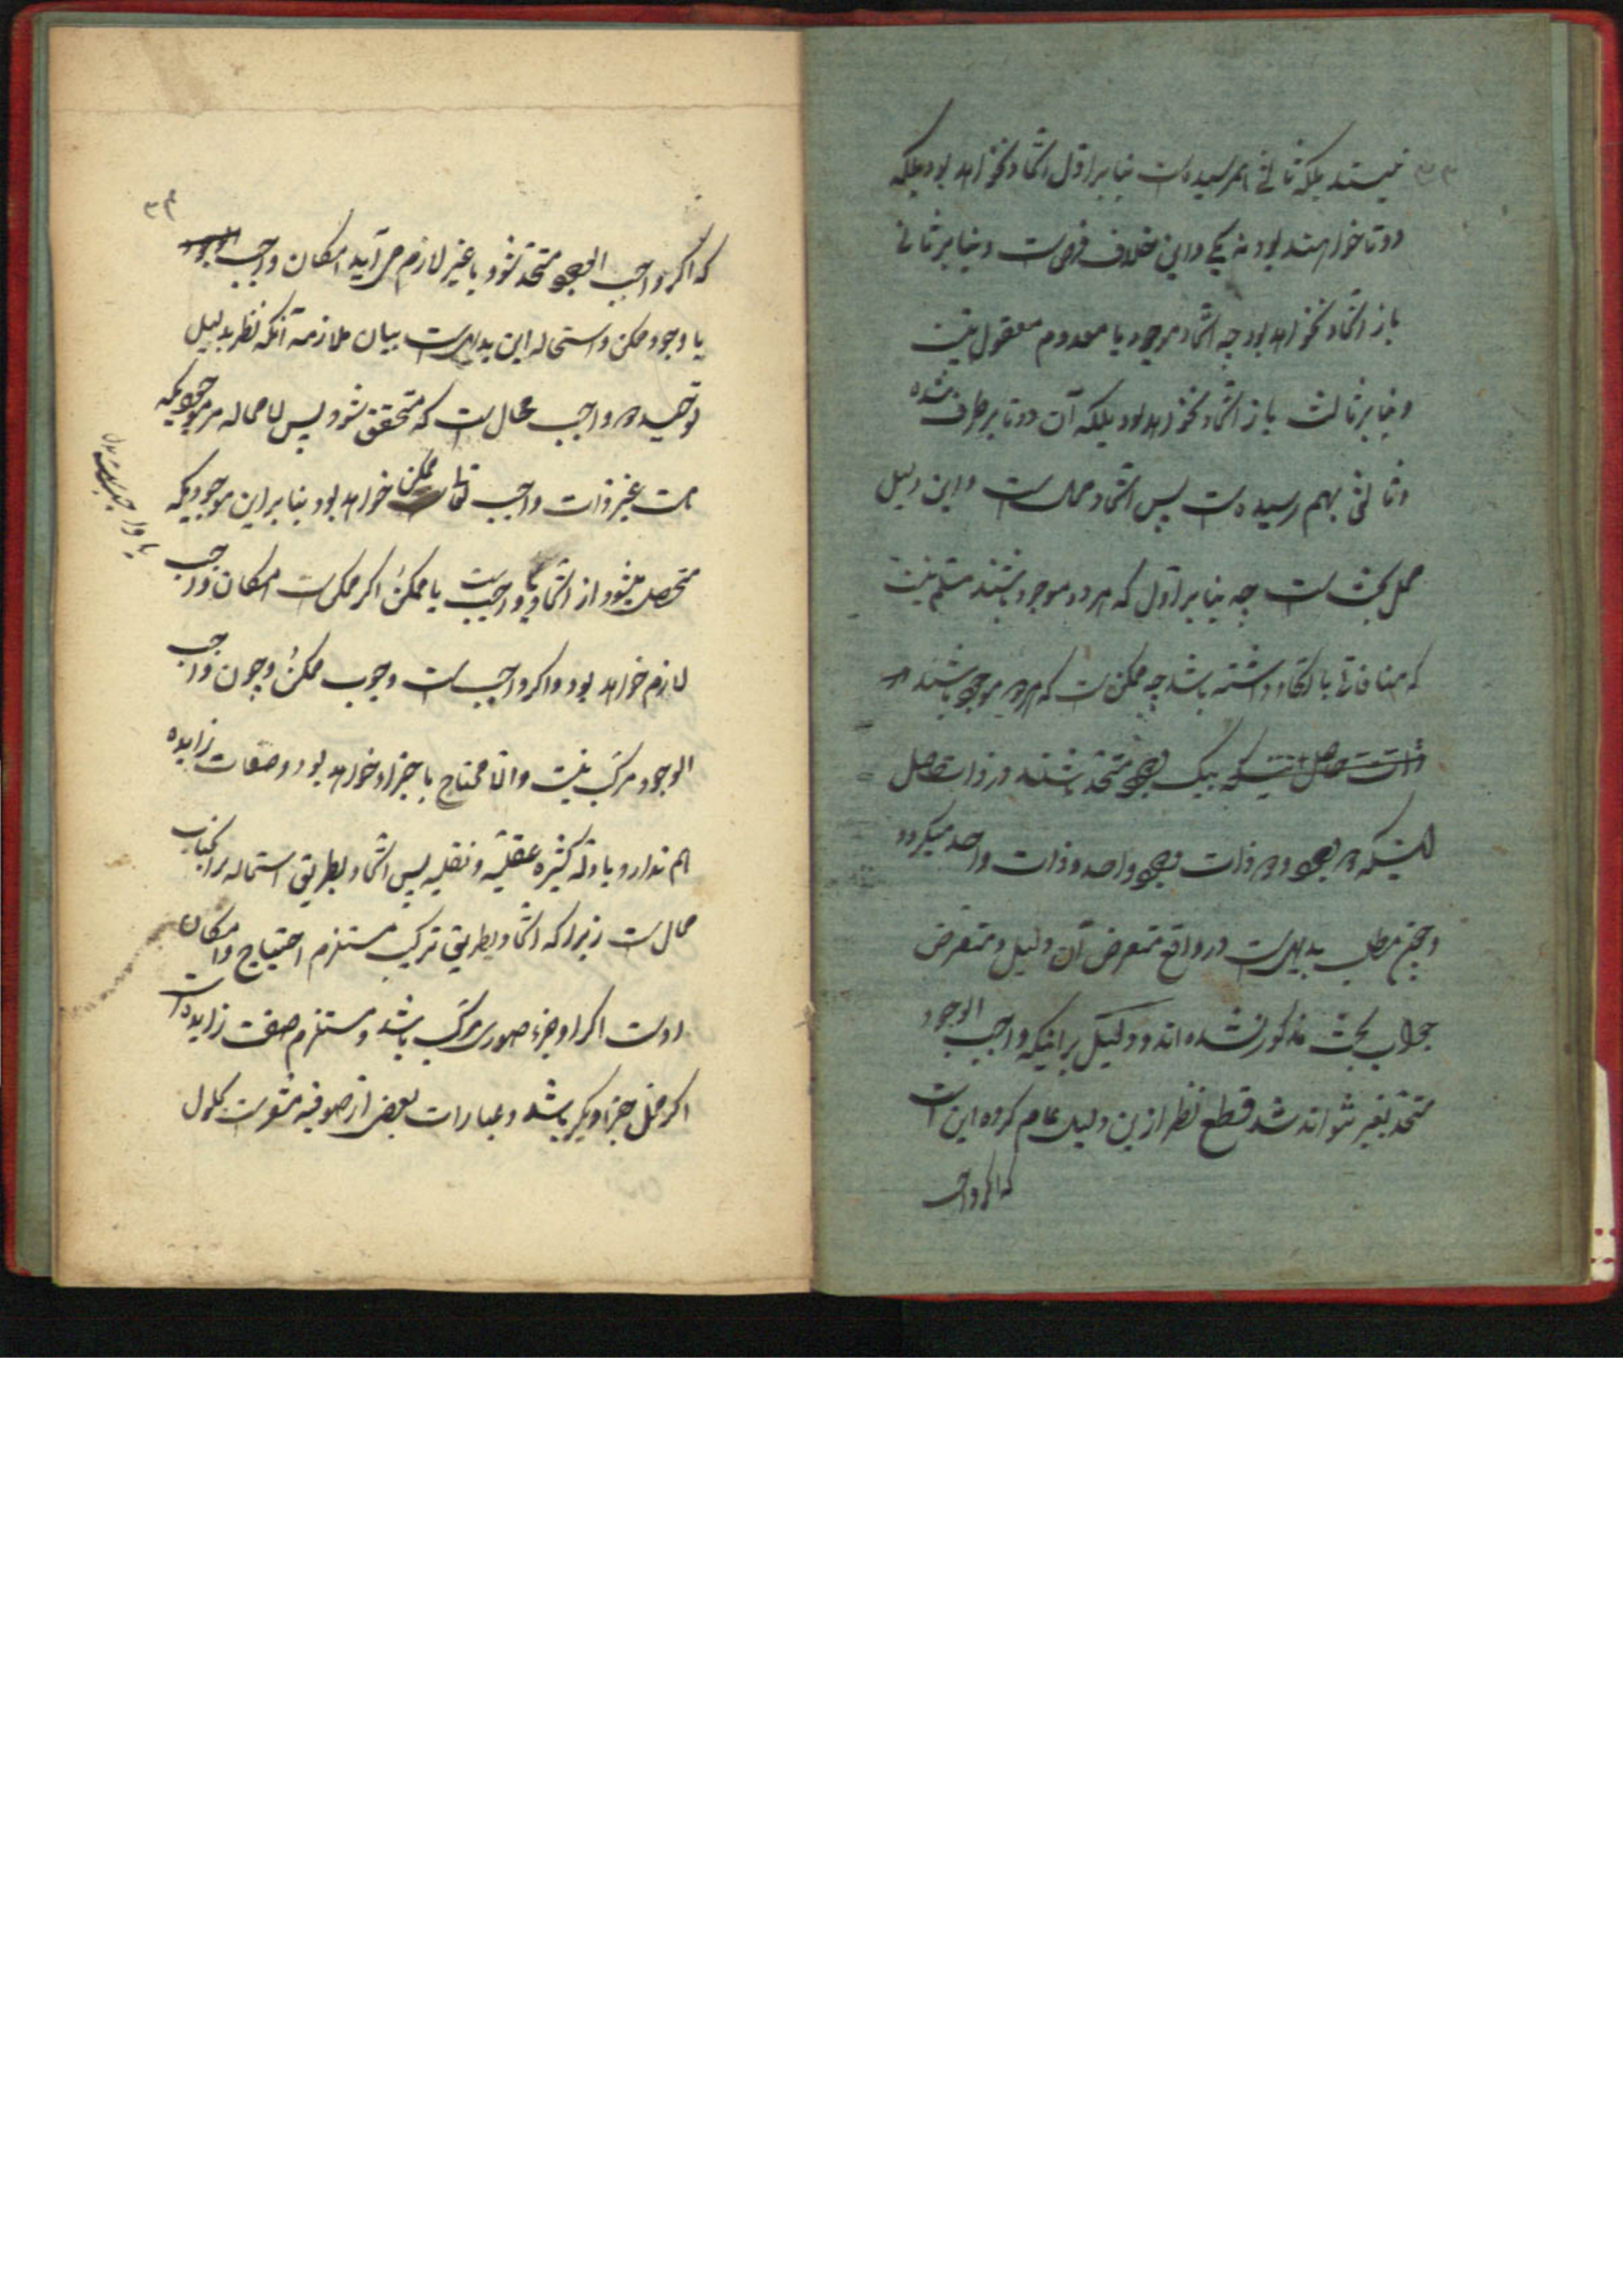 نیستند بلکه ثالثی بهم رسیده است بنابر اول اتحاد نخواهد بود بلکه
دوتا خواهند بود نه یکی و این خلاف فرض است و بنابر ثانی
باز اتحاد نخواهد بود چه اتحاد موجود با معدوم معقول نیست
و بنابر ثالث باز اتحاد نخواهد بود بلکه آن دوتا برطرف شده
و ثالثی بهم رسیده است پس اتحاد محال است و این دلیل
محل بحث است چه بنابر اول که هر دو موجود باشند مسلم نیست
که منافاتی با اتحاد داشته باشد چه ممکن است که هر دو موجود باشند
بیک وجود متحد باشند در ذات حاصل
اینکه دو وجود و دو ذات وجود واحد و ذات واحد میگردد
و چون مطلب بدیهی است در واقع متعرض آن دلیل و متعرض
جواب بحث مذکور نشده اند و دلیل بر اینکه واجب الوجود
متحد بغیر نتواند شد قطع نظر ازین دلیل عام کرده این است
که اگر واجب
۳۴
که اگر واجب الوجود متحد شود با غیر لازم می آید امکان واجب الوجود
یا وجود ممکن و استحاله این بدیهی است بیان ملازمه آنکه نظر بدلیل
توحید دو واجب محال است که متحقق شود پس لا محاله هر موجودیکه
هست غیر ذات واجب تعالی ممکن خواهد بود بنابر این موجودیکه
متحصل میشود از اتحاد یا واجب است یا ممکن اگر ممکن است امکان واجب
لازم خواهد بود و اگر واجب است وجوب ممکن و چون واجب
الوجود مرکب نیست و الا محتاج باجزاء خواهد بود و صفات زایده
هم ندارد بادله کثیره عقلیه و نقلیه پس اتحاد بطریق استحاله بر آنجناب
محال است زیرا که اتحاد بطریق ترکیب مستلزم احتیاج و امکان
اوست اگر او جزء صوری مرکب باشد و مستلزم صفت زایده است
اگر محل جزء دیگر باشد و عبارات بعضی از صوفیه مشعر است بحلول